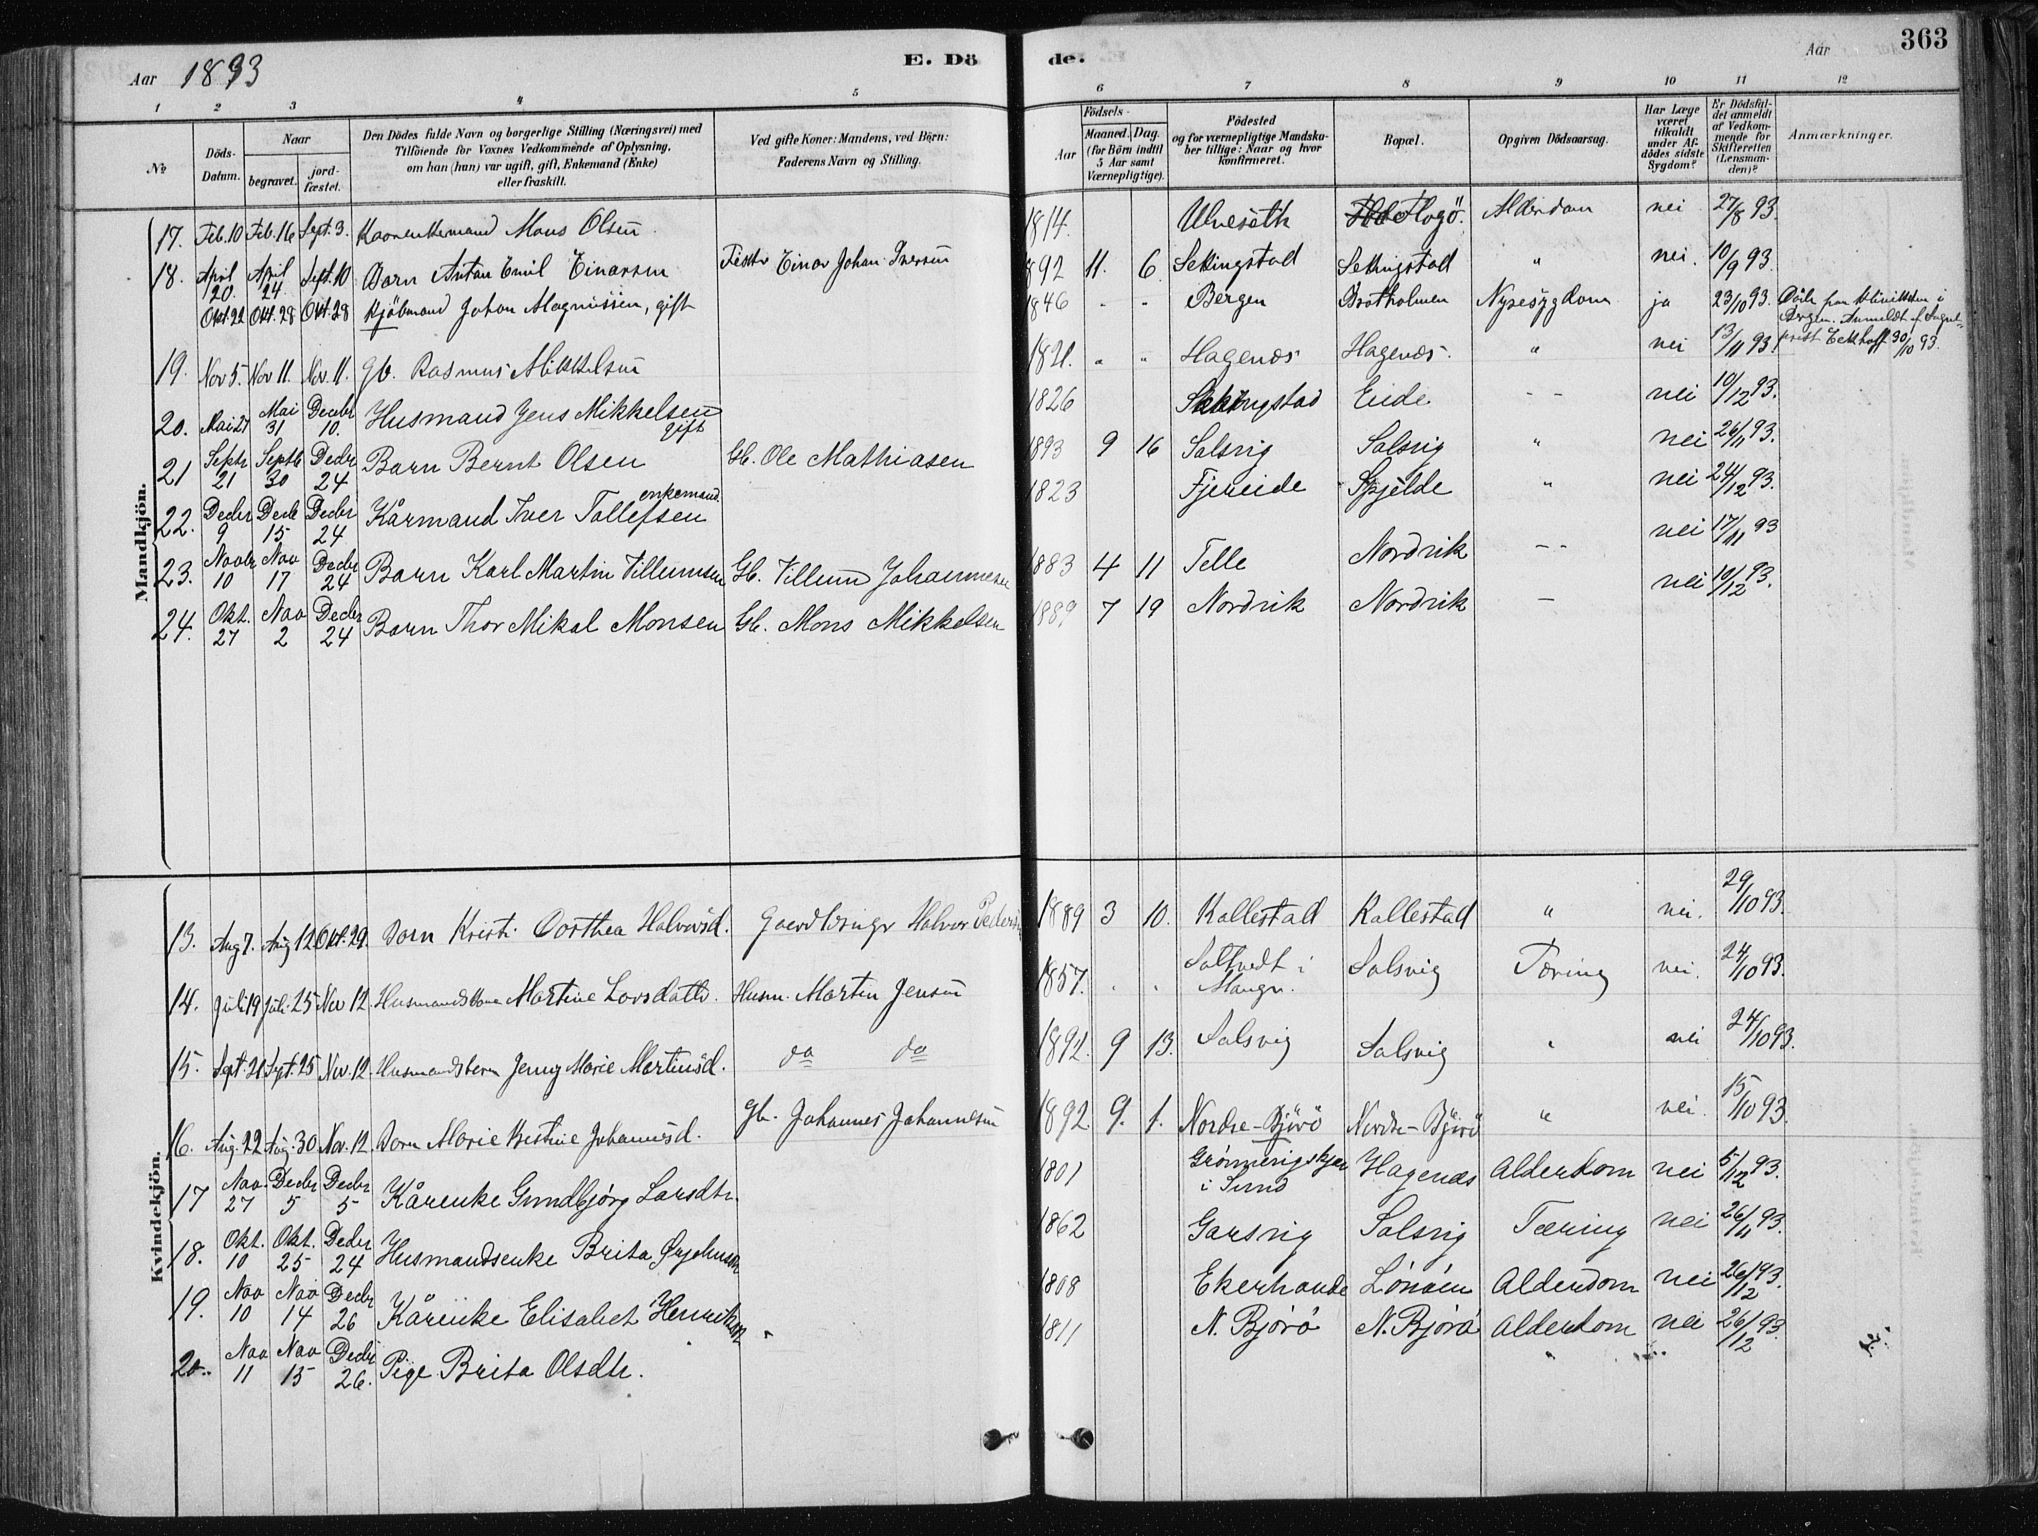 Aar 1893 E. Dö
de. Aar 363
1 2 3 4 5
6 7 8 9 10 11 12
№
Döds-Datum.
Naar
begravet. jordfæstet.
Den Dödes fulde Navn og borgerlige Stilling (Næringsvei) med
Tilföiende for Voxnes Vedkommende af Oplysning,
om han (hun) var ugift, gift, Enkemand (Enke)
eller fraskilt.
Ved gifte Koner: Mandens, ved Børn:
Faderens Navn og Stilling.
Födsels-
Aar Maaned. Dag.
(for Börn indtil
5 Aar samt
Værnepligtige).
Födested
og for værnepligtige Mandskaber tillige: Naar og hvor
konfirmeret.
Bopæl.
Opgiven Dödsaarsag.
Har Læge
været
tilkaldt
under Afdödes sidste
Sygdom?
Er Dödsfaldet anmeldt
af Vedkommende for
Skifteretten
(Lensmanden)?
Anmærkninger.
Mandkjön.
17. Feb. 10 Feb. 16 Sept. 3. Mons Olsen 1814. Ulveseth Flogö. Alderdom nei 27/8 93.
18. April 20. April 24 Sept. 10 Barn Anton Emil Einarsen Einar Johan Iversen 1892 11. 6 Sekkingstad Sekkingstad " nei. 10/9 93.
Okt. 22 Okt. 28 Okt. 28 Kjöbmand Johan Magnussen, gift 1846 - - Bergen Brotholmen Nyresygdom ja 23/10 93.
30/10 93.
19. Nov 5. Nov 11. Nov. 11. Gb. Rasmus Mikkelsen 1821. " " Hagenæs Hagenæs " nei 13/11 93.
20. Mai 27 Mai 31 Decebr 10. Husmand Jens Mikkelsen gift 1826 Sekkingstad Eide - - nei 10/12 93.
21 Septr 21 Septb 30 Decbr 24 Barn Bernt Olsen Gb. Ole Mathiasen 1893 9 16 Solsvig Solsvig " nei 26/11 93.
22. Decbr 9 Decb 15 Decbr 24 Kårmand Iver Tollefsen enkemand. 1823 Fjereide Spjelde " nei 24/12 93.
23. Novbr 10 Nov 17 Decbr 24 Barn Karl Martin Villumsen Gb. Villum Johannesen 1883 4 11 Telle Nordvik - - nei 17/11 93
24. Okt. 27 Nov 2 Decbr 24 Barn Thor Mikal Monsen Gb. Mons Mikkelsen 1889 7 19 Nordvik Nordvik - nei 10/12 93.
Kvindekjön.
13. Aug 7. Aug 12 Okt. 29. Barn Kristi Dorthea Halvorsd. Gaardbruger Halvor Peders 1889 3 10. Kallestad Kallestad " nei. 29/10 93.
14. Juli 19 Juli 25 Nov 12. Husmandskone Martine Larsdattr. Husm. Martin Jensen 1857. . . Saltvedt i Mangr. Solsvig Tæring nei. 24/10 93.
15. Sept. 21 Sept. 25 Nov. 12. Husmandsbarn Jenny Marie Martinsd. do do 1892. 9 13. Solsvig Solsvig " nei 24/10 93.
16. Aug. 22 Aug. 30 Nov. 12. Barn Marie Kristine Johannesd. Gb. Johannes Johannesen 1892 9. 1. Nordre-Björö Nordre-Björö " nei. 15/10 93.
17 Nov 27 Decbr 5 Decbr 5 Kårenke Gundbjörg Larsdtr. 1801 i Sund Hagenæs Alderdom nei 5/12 93.
18. Okt. 10 Okt. 25 Decbr 24 Husmandsenke Brita 1862 Garsvig Solsvig Tæring nei 26/11 93.
19. Nov 10 Nov 14 Decbr 26 Kårenke Elisabet Henriksen 1808 Ekerhovde Lönöen Alderdom nei 26/12 93.
20. Nov 11 Nov 15 Decbr 26. Pige Brita Olsdtr. 1811 N. Björö N. Björö Alderdom nei 26/12 93.